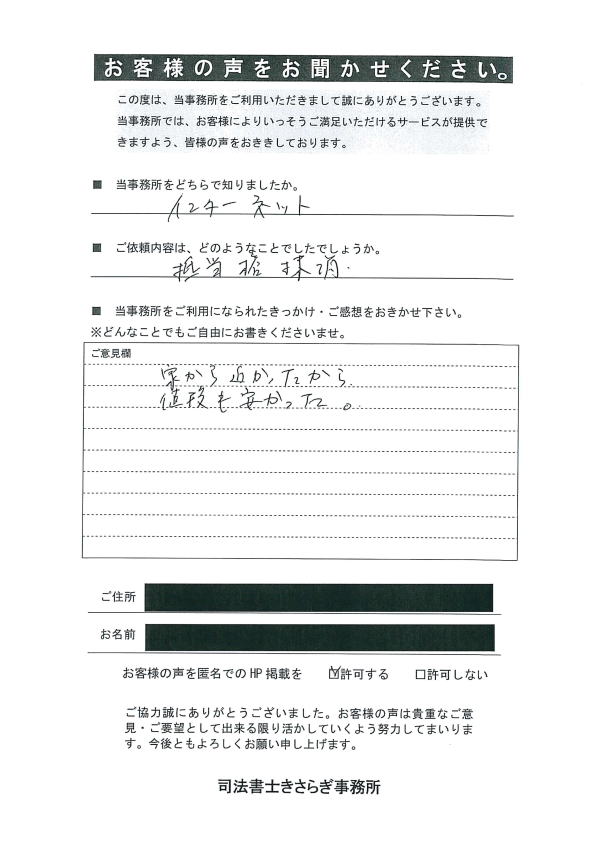 お客様の声をお聞かせください。
この度は、当事務所をご利用いただきまして誠にありがとうございます。
当事務所では、お客様によりいっそうご満足いただけるサービスが提供で
きますよう、皆様の声をおききしております。
■ 当事務所をどちらで知りましたか。
インターネット
■ ご依頼内容は、どのようなことでしたでしょうか。
抵当権抹消.
■ 当事務所をご利用になられたきっかけ・ご感想をおきかせ下さい。
※どんなことでもご自由にお書きくださいませ。
ご意見欄
家から近かったから
値段も安かった。
ご住所
お名前
お客様の声を匿名でのHP掲載を ☑許可する □許可しない
ご協力誠にありがとうございました。お客様の声は貴重なご意
見・ご要望として出来る限り活かしていくよう努力してまいりま
す。今後ともよろしくお願い申し上げます。
司法書士きさらぎ事務所